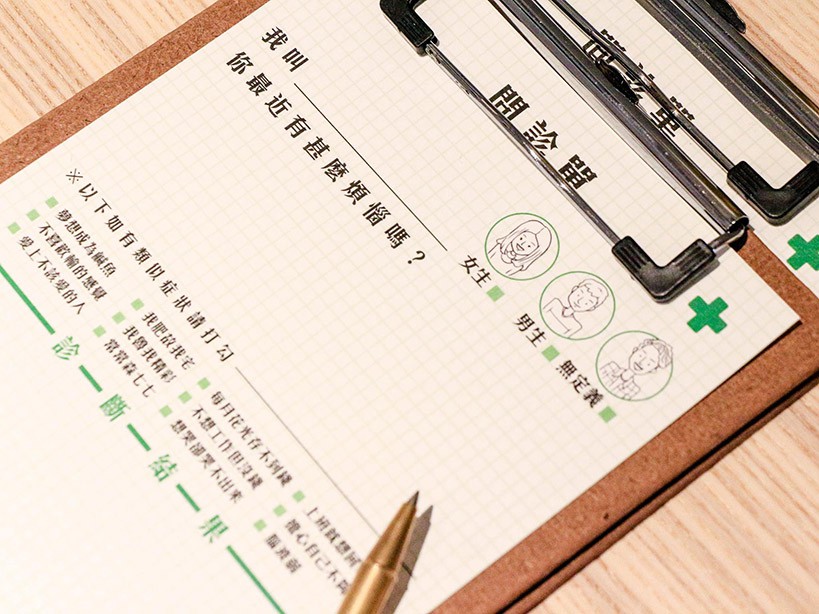 問診單
女生
男生
無定義
我叫
你最近有甚麼煩惱嗎？
※以下如有類似症狀請打勾
夢想成為鹹魚
不喜歡輸的感覺
愛上不該愛的人
我肥故我宅
我魯我精彩
常常森七七
每月花光存不到錢
不想工作但沒錢
想哭卻哭不出來
上班就想
擔心自己不
腦波弱
診斷結果